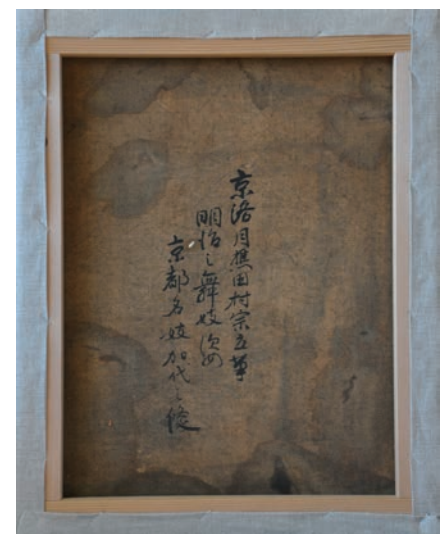 京洛月樵田村宗立筆
明治之舞妓姿
京都名妓加代之像